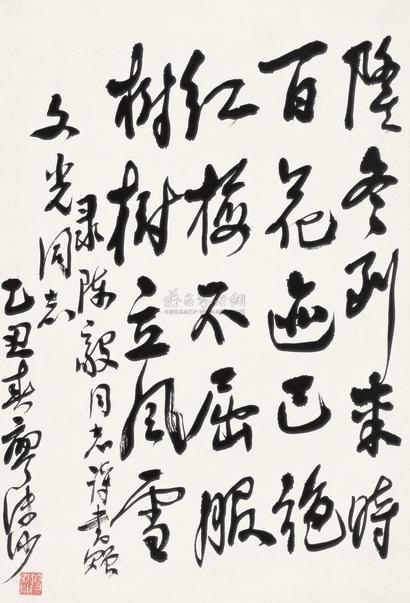 隆冬到来时
百花迹已绝
红梅不屈服
樹樹立风雪
录陈毅同志诗书赠
文光同志
乙丑春廖沫沙